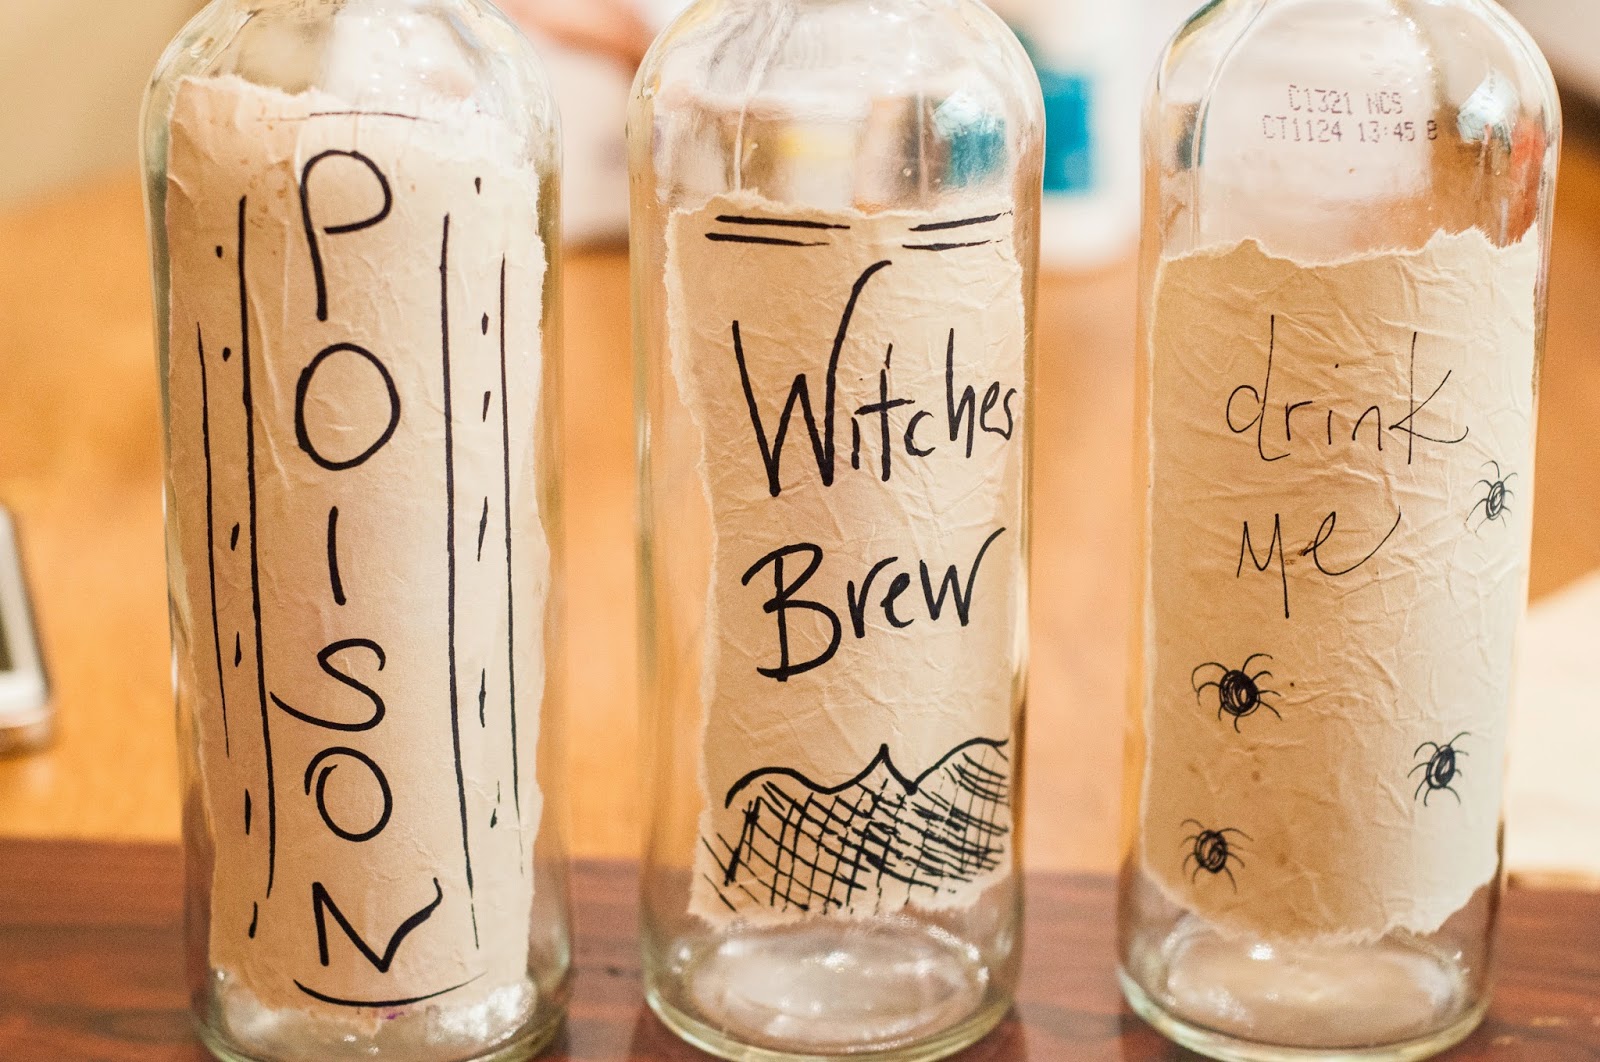 POISON
Witches
Brew
drink
me
C1321 NCS
CT1124 13:45 B